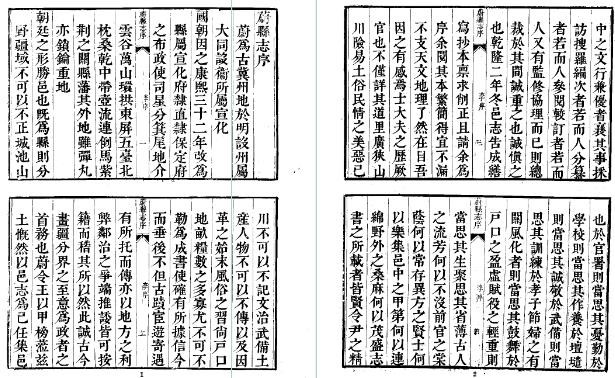 蔚縣志序
蔚爲古冀州地於明設州屬
大同設衛所屬宣化
國朝因之康熙三十二年改爲
縣屬宣化府隷直隷保定府
之布政使司星分箕尾地介
蔚縣志序
李序
一
雲谷萬山環拱東屏五臺北
枕桑乾中帶壺流連倒馬紫
荆之關縣藩其外地雖彈丸
亦鎖鑰重地
朝廷之形勝邑也既爲縣則分
野疆域不可以不正城池山
川不可以不記文治武備土
産人物不可以不傳以及因
革之始末風俗之習尚戸口
地畝糧數之多寡尤不可不
勒爲成書使確有所據信今
而垂後不但古蹟宦遊寄遇
蔚縣志序
李序
二
有所托而傳亦以地方之利
弊鄰治之爭端推諉皆可按
籍而稽其所以然此誠古今
畫疆分界之至意爲政者之
首務也蔚令王以甲榜蒞兹
土慨然以邑志爲己任集邑
1
中之文行兼優者襄其事採
訪搜羅編次者若而人分纂
者若而人參閱較訂者若而
人又有監修協理而已則總
裁於其間誠重之也誠愼之
也乾隆二年冬邑志告成繕
蔚縣志序
李序
三
寫抄本禀求削正且請余爲
序余閱其本繁簡得宜不漏
不支天文地理了然在目吾
因之有感焉士大夫之歷厥
官也不僅詳其道里廣狹山
川險易土俗民情之美惡已
也於官署則當思其憂勤於
學校則當思其作養於壇壝
則當思其誠敬於武備則當
思其訓練於孝子節婦之有
關風化者則當思其鼓舞於
戸口之盈虚賦役之輕重則
蔚縣志序
李序
四
當思其生聚思其省薄古人
之流芳何以不没前官之棠
蔭何以常存異方之賢士何
以樂集邑中之甲第何以連
綿野外之桑麻何以茂盛志
書之所載者皆賢令尹之精
2